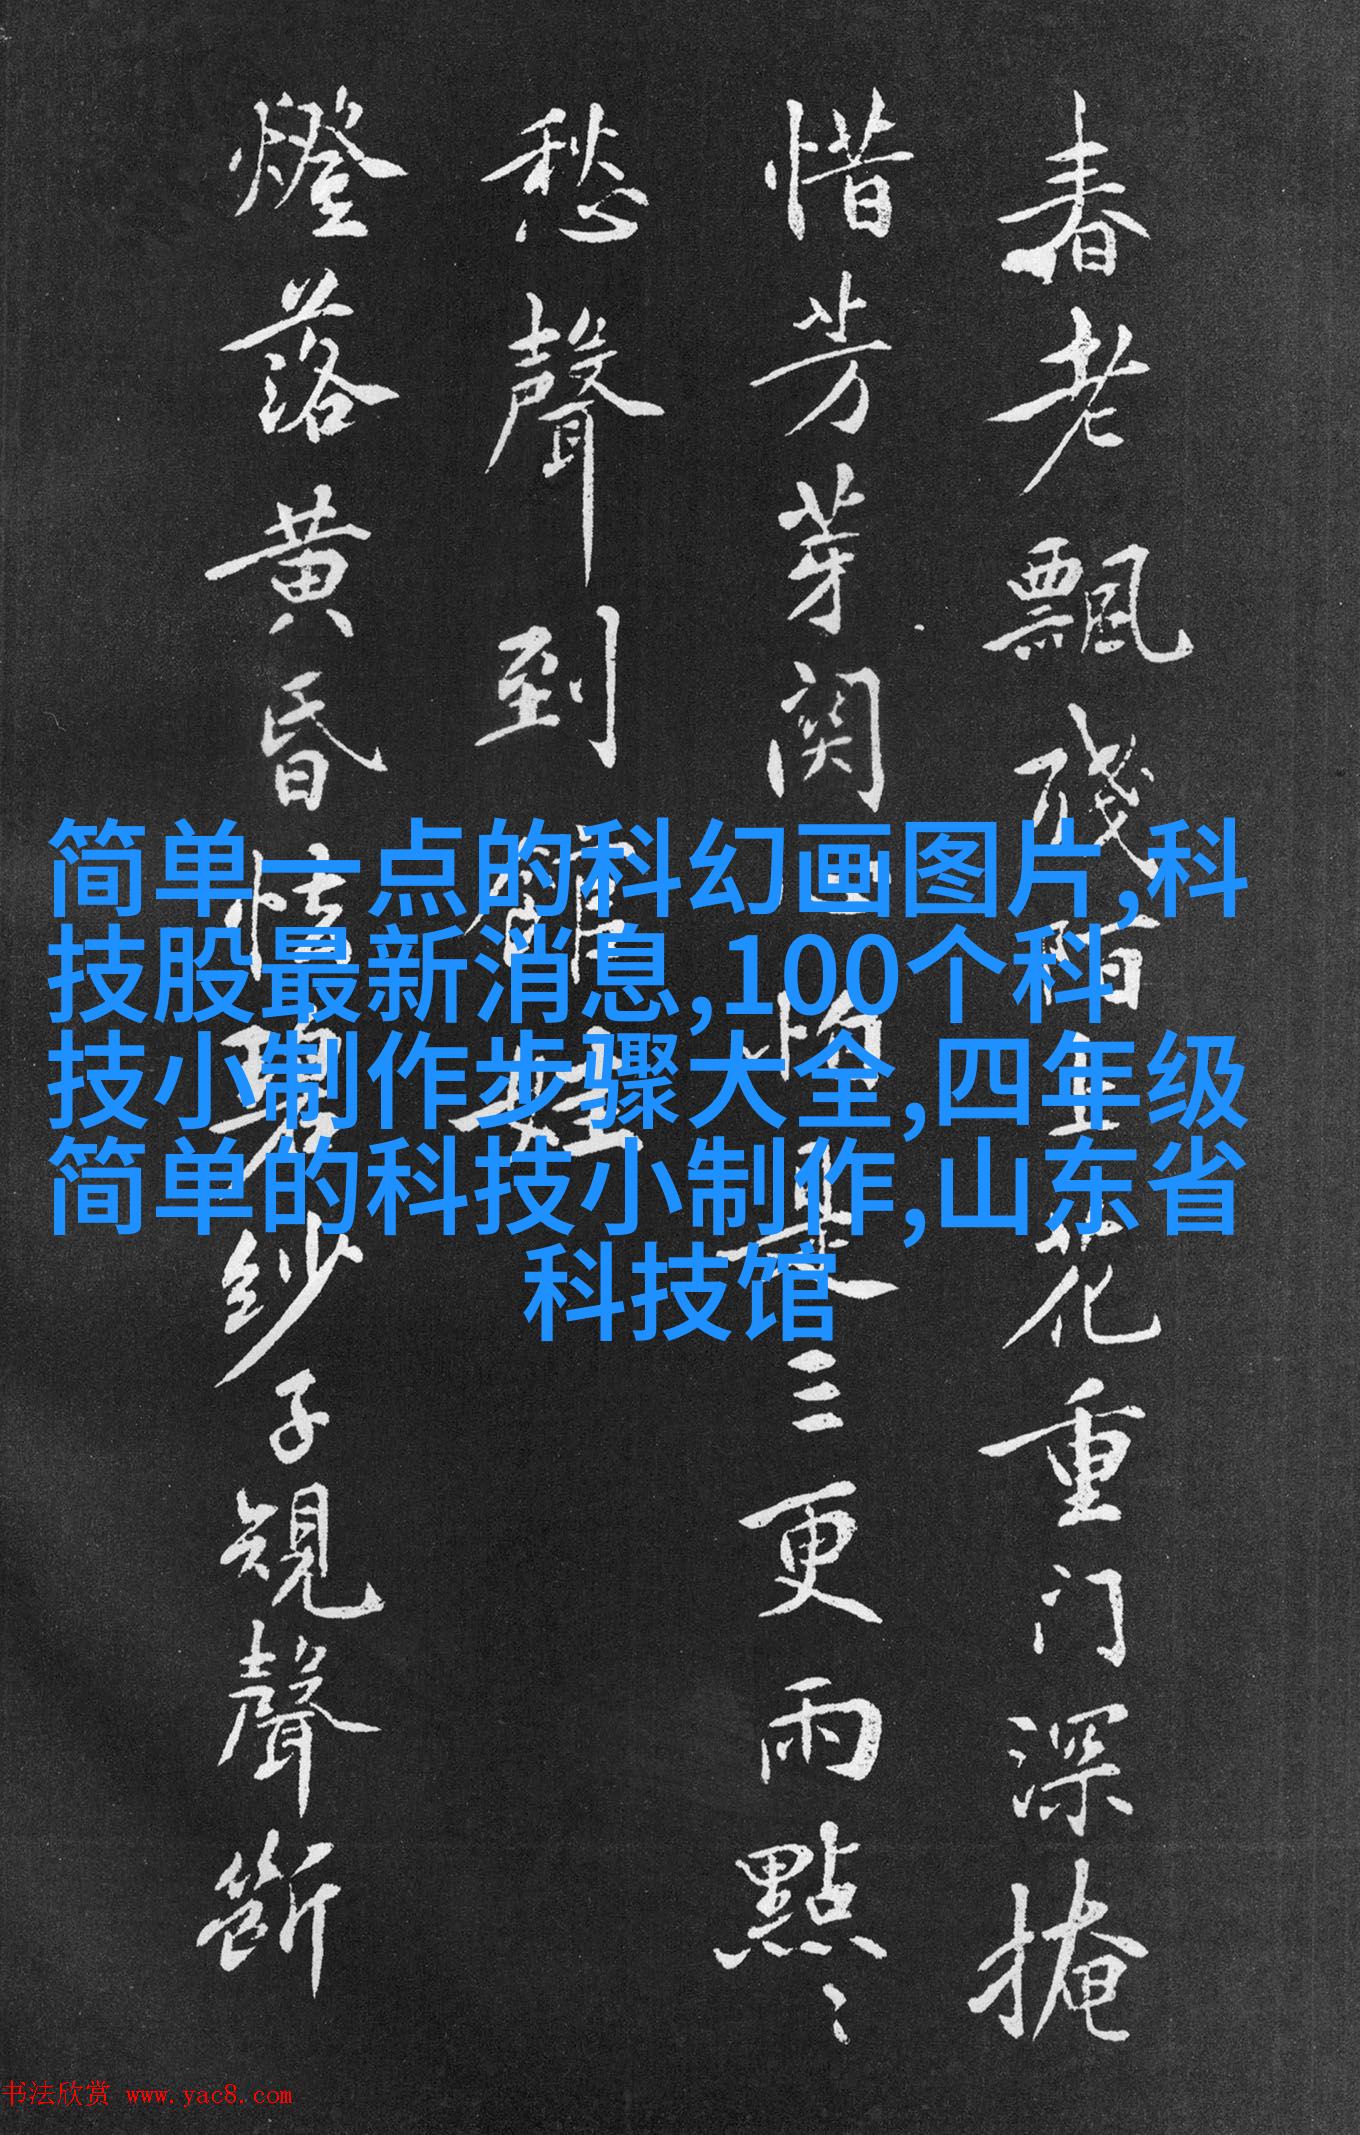 春老飄殘陌上花重门深掩
惜芳芽関怕是三更雨點〻
愁聲到
燈落黄昏怯碧紗子規聲斷
简单一点的科幻画图片,科
技股最新消息,100个科
技小制作步骤大全,四年级
简单的科技小制作,山东省
科技馆
书法欣赏 www.yac8.com